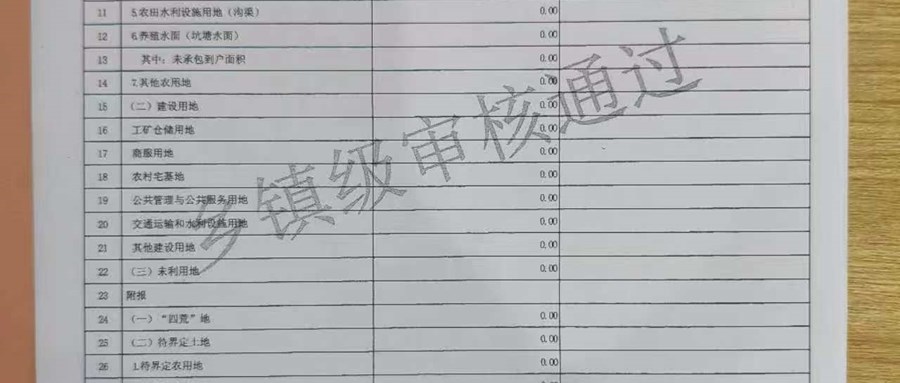 11 5.农田水利设施用地（沟渠） 0.00
12 6.养殖水面（坑塘水面） 0.00
13 其中：未承包到户面积 0.00
14 7.其他农用地 0.00
15 （二）建设用地 0.00
16 工矿仓储用地 0.00
17 商服用地 0.00
18 农村宅基地 0.00
19 公共管理与公共服务用地 0.00
20 交通运输和水利设施用地 0.00
21 其他建设用地 0.00
22 （三）未利用地 0.00
23 附报
24 （一）“四荒”地 0.00
25 （二）待界定土地 0.00
26 1.待界定农用地 0.00
乡镇级审核通过